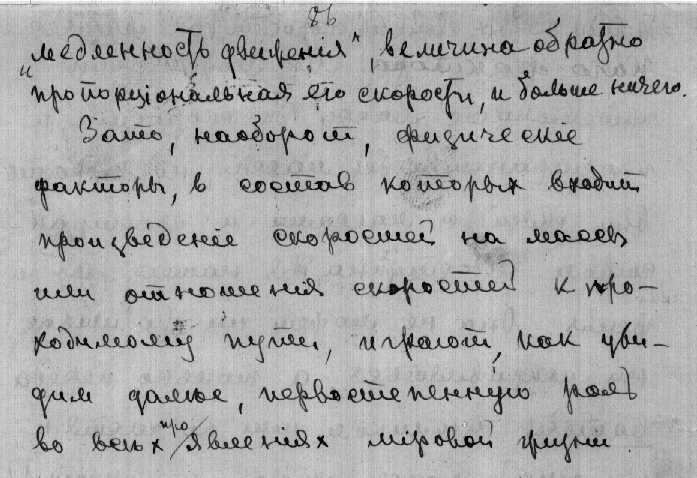 86
„медленность движенія“, величина обратно
пропорціональная его скорости, и больше ничего.
Зато, наоборот, физическіе
факторы, в состав которых входит
произведеніе скоростей на массы
или отношенія скоростей к про-
ходимому пути, играют, как уви-
дим далее, первостепенную роль
во всех проявленіях міровой жизни.